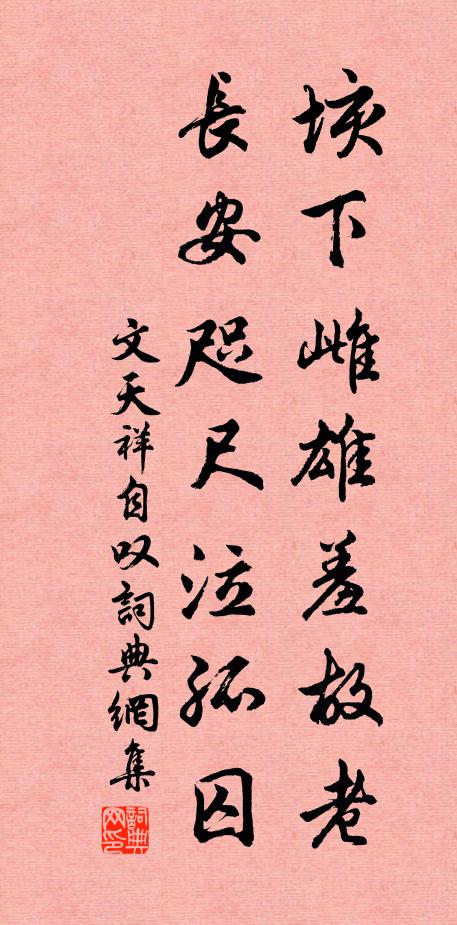 垓下雌雄羞故老
長安咫尺泣孤囚
文天祥自叹詞典網集
詞典
网印